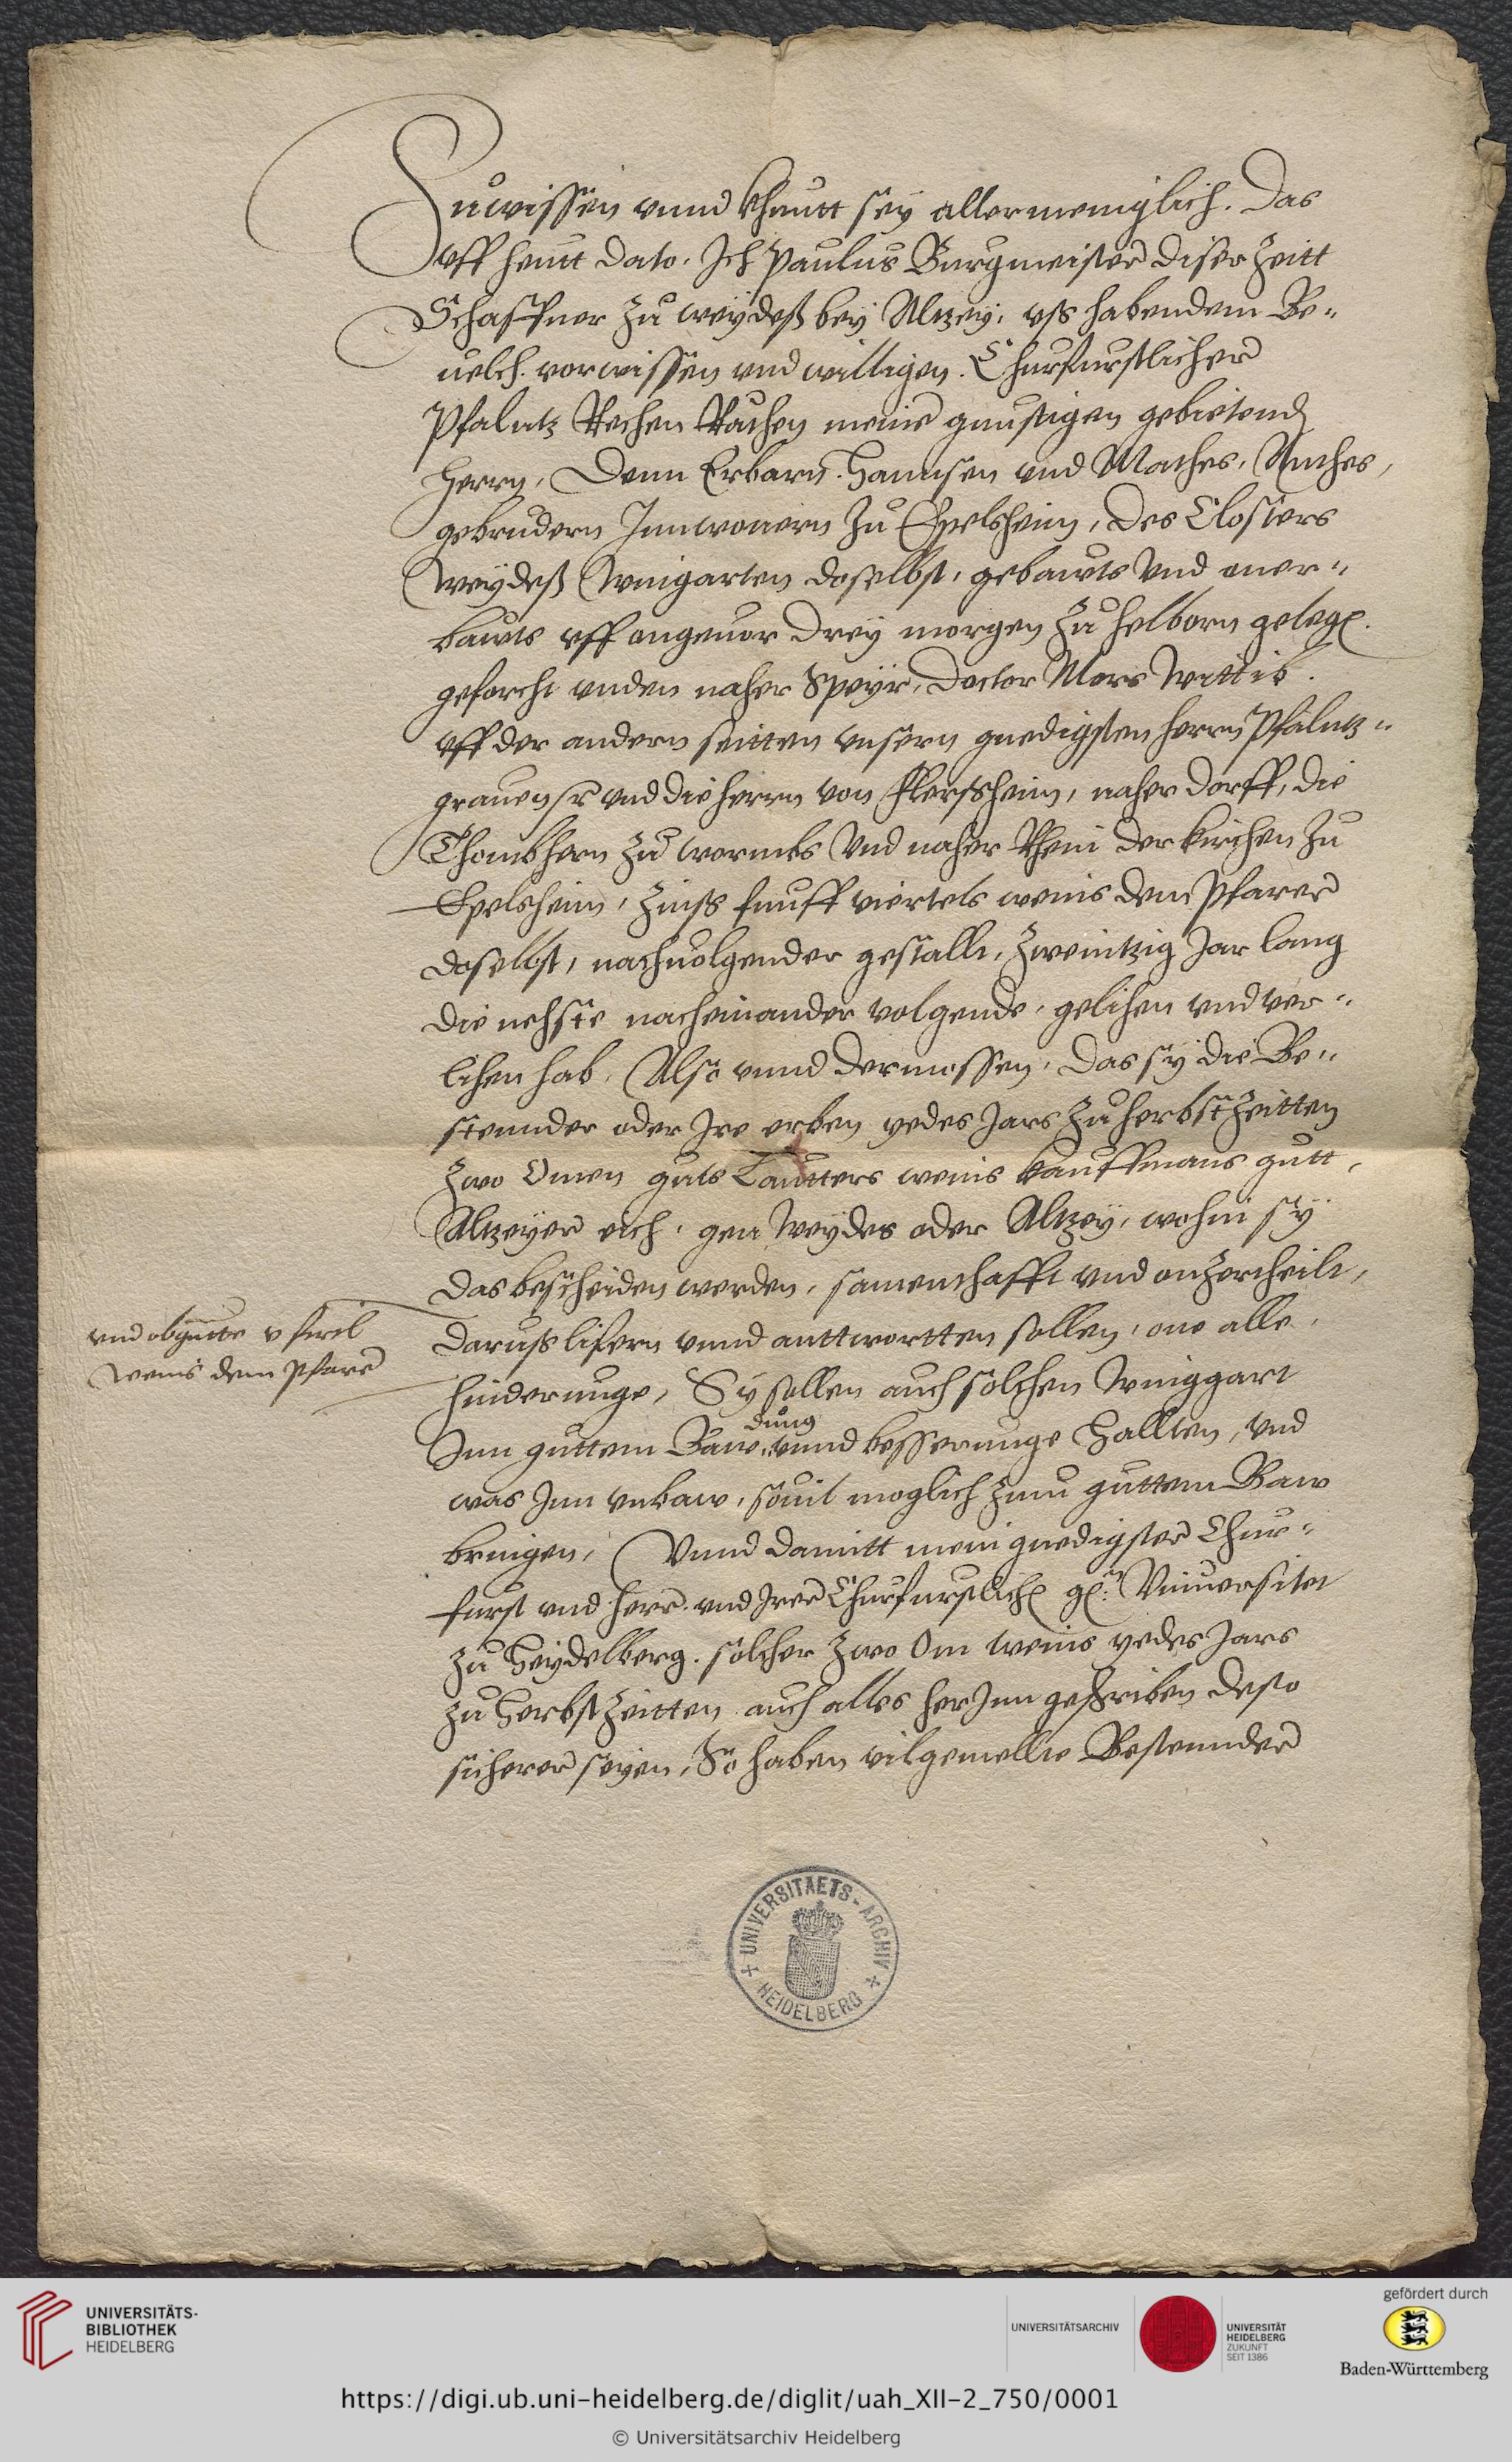 Zuwissen vnnd khuntt sey allermeniglich. Das
vff heutt dato. Ich Paulus Burgmeister diser Zeitt
Schaffner zu weydeß bey Altzey, vß habendem Be-
uelch. vorwissen vnd willigen. Churfurstlicher
Pfalntz Rechen Rathen meine gunstigen gebietend
herrn, Denn Erbarn. Hannsen vnd Mathes, Anthes,
gebrudern Innwonern zu Epelsheim, des Closters
Weydeß Wingarten doselbst, gebawts vnd oner-
bawts vff ongeuor drey morgen zu helborn geleg.
geforcht vnden naher Speyr, Doctor Mors Wittib.
vff der andern seitten vnsern gnedigsten herrn Pfalntz-
grauen vnd die herrn von Flersheim, naher dorff, die
Thombhern zu wormbs vnd naher Rhein der kirchen zu
Epelsheim, Zinß funff viertels weins dem Pfarer
doselbst, nachuolgender gestallt, Zweintzig Jar lang
die nehste nacheinander volgende, gelihen vnd ver-
lihen hab, Also vnnd dermossen, das sy die Be-
stennder oder Ire erben yedes Jars zu herbstzeitten
zwo Omen guts Lautters weins kauffmans gutt,
Altzeyer eich, gen Weydes oder Altzey, wohin sy
das bescheiden werden, samenthafft vnd onzertheilt,
vnd obgnite v firtl
weins dem Pfarer
daruß lifern vnnd anttwortten sollen, one alle
hinderunge, Sy sollen auch solchen Winggart
dung
Inn guttem Baw, vnnd besserunge Hallten, vnd
was Inn vnbaw, souil moglich zuu guttem Baw
bringen, Vnnd damitt mein gnedigster Chur-
furst vnd herr. vnd Irer Churfurstlich g. Vniuersitet
zu Heydelberg. solcher zwo Om weins yedes Jars
zu Herbstzeitten auch alles herInn geschriben desto
sicherer seyen, So haben vilgemellte Bestennder
UNIVERSITAETS-ARCHIV
HEIDELBERG
UNIVERSITÄTS-
BIBLIOTHEK
HEIDELBERG
UNIVERSITÄTSARCHIV
UNIVERSITÄT
HEIDELBERG
ZUKUNFT
SEIT 1386
gefördert durch
Baden-Württemberg
https://digi.ub.uni-heidelberg.de/diglit/uah_XII-2_750/0001
© Universitätsarchiv Heidelberg